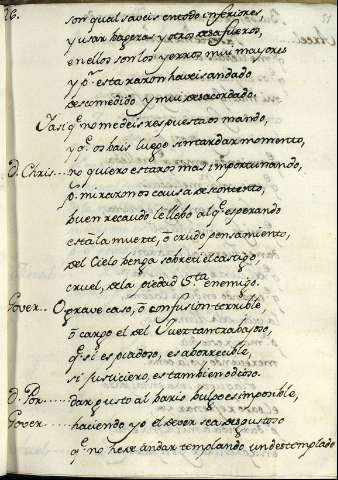 26.
51
son qual saveis en todo inferiores
y usar haçeras y otros desafueros,
en ellos son los yerros mui mayores
y pr. esta raxon haveis andado
descomedido y mui desacordado.
Y asi qe. no me deis respuesta os mando,
y qe. os bais luego sin tardar momento,
D. Chris.... no quiero estaros mas importunando,
pr. mi raxon os causa descontento,
buen recaudo le llebo al qe. esperando
està la muerte, ò crudo pensamiento,
del Cielo benga sobre ti el castigo,
cruel, de la piedad enemigo.
Gover... O grave caso, ò confusion terrible,
ò cargo el del tan trabajoso,
qe. si es piadoso, es aborrecible,
si justiciero, es tambien odioso.
D. Por...... dar gusto al baris bulgo es imposible,
Gover...... haciendo yo el dever sea disgustoso
qe. no herrè andar templando un destemplado